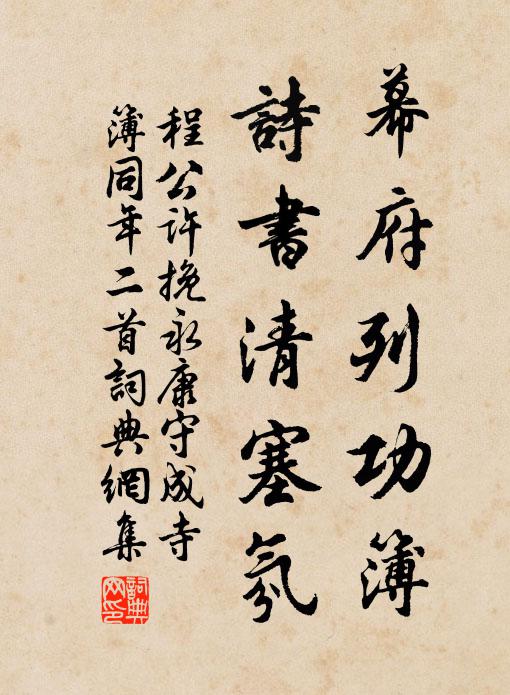 幕府列功簿
詩書清塞氛
程公許挽永康守成寺
簿同年二首詞典網集
詞典网印